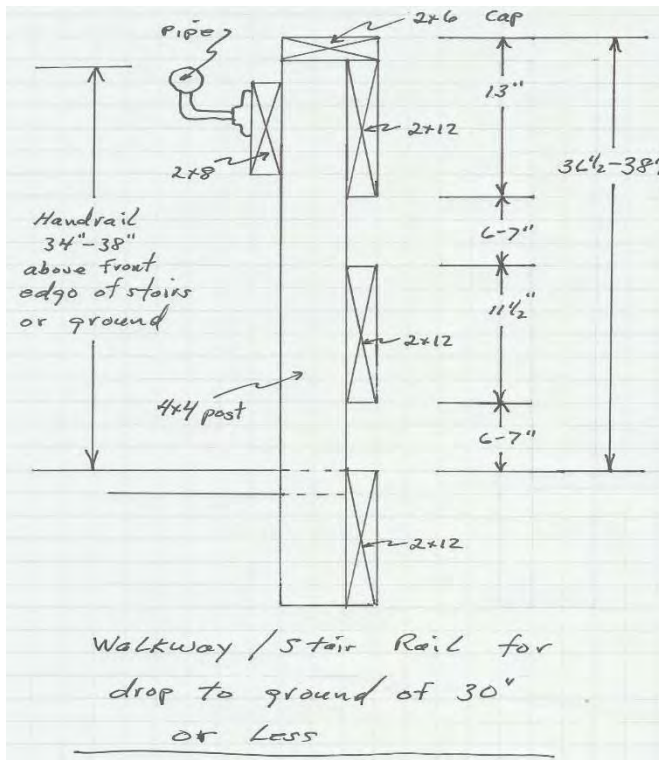 2x6 Cap
Pipe
13"
2x12
2x8
36½-38"
Handrail
34"-38"
above front
edge of stairs
or ground
6-7"
11½"
2x12
4x4 post
6-7"
2x12
Walkway / Stair Rail for
drop to ground of 30"
or Less